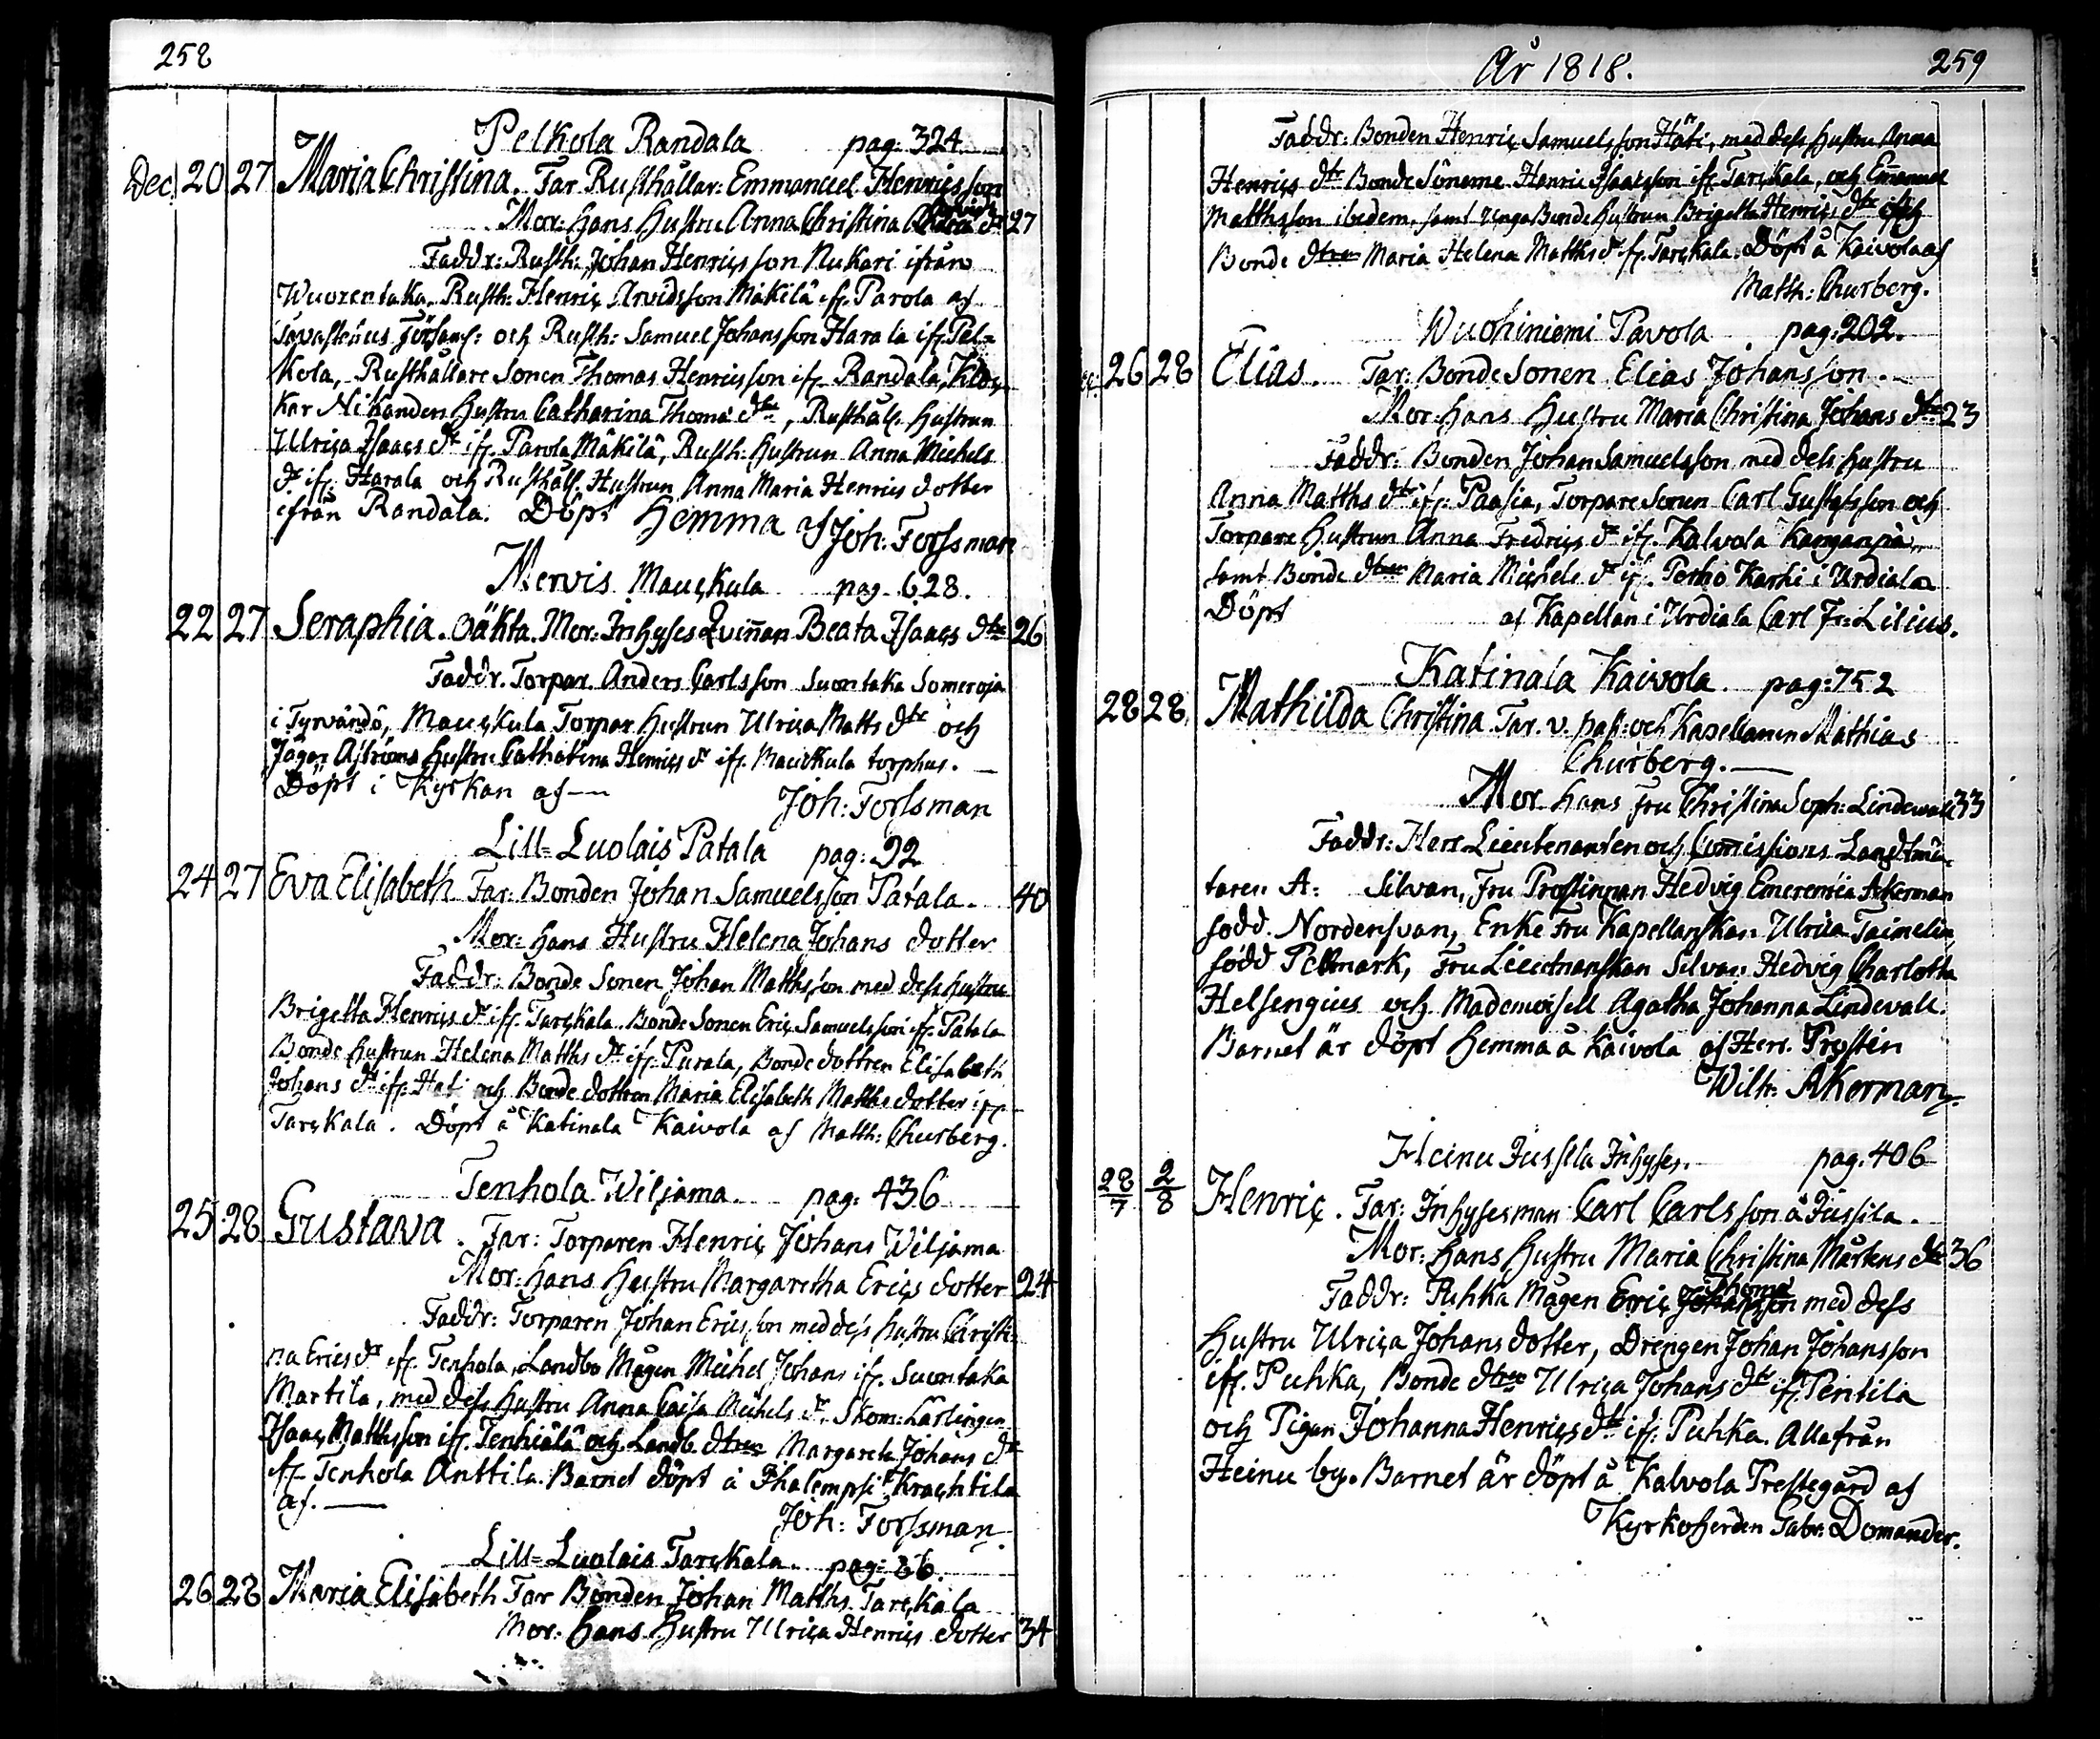 258
Pelkola Randala pag: 324
Dec. 20 27 Maria Christina. Far. Rusthållar: Emmanuel Henricsson
Mor: Hans Hustru Anna Christina dr 27
Faddr: Rusth: Johan Henricsson Nukari ifrån
Wuorentaka, Rusth: Henric Arvidsson Mäkilä ifr. Parola af
och Rusth: Samuel Johansson Harala ifr. Pel=
kola, Rusthållare Sonen Thomas Henricsson ifr. Randala, Kloc-
kar Nikanden Hustru Catharina Thomæ dtr, Rusthåls. Hustrun
Ulrica Isaacs dr ifr. Parola Mäkilä, Rusth: Hustrun Anna Michels
dr ifr. Harala och Rusthåls. Hustrun Anna Maria Henrics dotter
ifrån Randala. Döpt Hemma af Joh: Forssman
Mervis Mauckula pag. 628.
22 27 Seraphia. Oäkta. Mor: Inhyses Qvinnan Beata Isaacs dtr 26
Faddr. Torpar. Anders Carlsson Suontaka Someroja
i Tyrvändö, Mauckula Torpar Hustrun Ulrica Matts dtr och
Jägar Aströms Hustru Catharina Henrics dr ifr. Mauckula torphus.
Döpt i Kyrkan af
Joh: Forssman
Lill=Luolais Patala pag: 92
24 27 Eva Elisabeth Far: Bonden Johan Samuelsson Patala. 40
Mor: Hans Hustru Helena Johans dotter
Faddr: Bonde Sonen Johan Mattsson med dess hustru
Brigetta Henrics dr ifr. Tarckala Bonde Sonen Eric Samuelsson ifr. Patala
Bonde Hustrun Helena Matths dr ifr. Purala, Bonde dottren Elisabeth
Johans dr ifr. Hati och Bonde dottren Maria Elisabeth Matths dotter ifr.
Tarckala. Döpt å Katinala Kaivola af Matth: Churberg.
Tenhola Wiljama. pag: 436
25 28 Gustava. Far: Torparen Henric Johans Wiljama
Mor: Hans Hustru Margaretha Erics dotter 24
Faddr: Torparen Johan Ericsson med dess hustru Christi=
na Erics dr ifr. Tenhola, Landbo Mågen Michel Johans ifr. Suontaka
Martila, med dess Hustru Anna Caisa Michels dr, Skom: Lärlingen
Isaac Mattsson ifr. Tenhiälä och Landb. dtren Margareta Johans dtr
ifr. Tenhola Anttila. Barnet döpt å Krachtila
af.
Joh: Forssman
Lill=Luolais Tarckala. pag: 86.
26 28 Maria Elisabeth Far Bonden Johan Matths. Tarckala
Mor: Hans Hustru Ulrica Henrics dotter 34
År 1818. 259
Faddr: Bonden Henric Samuelsson Häti, med dess hustru Anna
Henrics dtr Bonde Sönerne Henric Isaacsson ifr. Tarckala, och Emanuel
Matthsson ibedem, samt unga Bonde Hustrun Brigetta Henrics dtr och
Bonde dtren Maria Helena Matths dr ifr. Tarckala. Döpt å Kaivola af
Matth: Churberg.
Wuohiniemi Pavola pag: 202.
26 28 Elias. Far: Bonde Sonen Elias Johansson.
Mor: Hans Hustru Maria Christina Johans dtr 23
Faddr: Bonden Johan Samuelsson med dess hustru
Anna Matths dtr ifr. Paasia, Torpare Sonen Carl Gustafsson och
Torpare Hustrun Anna Fredrics dr ifr. Kalvola Kanganpä,
samt Bonde dtren Maria Michels dr ifr. Perho Karhi i Urdiala
Döpt af Kapellan i Urdiala Carl Fr: Lilius.
Katinala Kaivola. pag: 752
28 28 Mathilda Christina Far. v. past: och Kapellanen Mathias
Churberg.
Mor Hans Fru Christina Soph: Lindewall 33
Faddr: Herr Lieutenanten och Comissions Landtmä-
taren A: Silvan, Fru Prostinnan Hedvig Emerentia Akerman
född Nordensvan, Enke Fru Kapellanskan Ulrica Taimelin,
född Pellmark, Fru Lieutnanskan Silvan Hedvig Charlotta
Helsengius och Mademoisell Agatha Johanna Lindevall.
Barnet är döpt hemma å Kaivola af Herr. Prosten
Wilh: Akerman
Heinu Jussila Inhyses. pag. 406
28/7 2/8 Henric. Far: Inhyses man Carl Carlsson å Jussila.
Mor: Hans Hustru Maria Christina Mårtens dtr 36
Faddr: Puhka Mågen Eric Thomæ Johansson med dess
Hustru Ulrica Johans dotter, Drengen Johan Johansson
ifr. Puhka, Bonde dtren Ulrica Johans dtr ifr. Pentila
och Pigan Johanna Henrics dtr ifr. Puhka. Alla från
Heinu by. Barnet är döpt å Kalvola Prestegård af
Kyrkoherden Gabr: Domander.